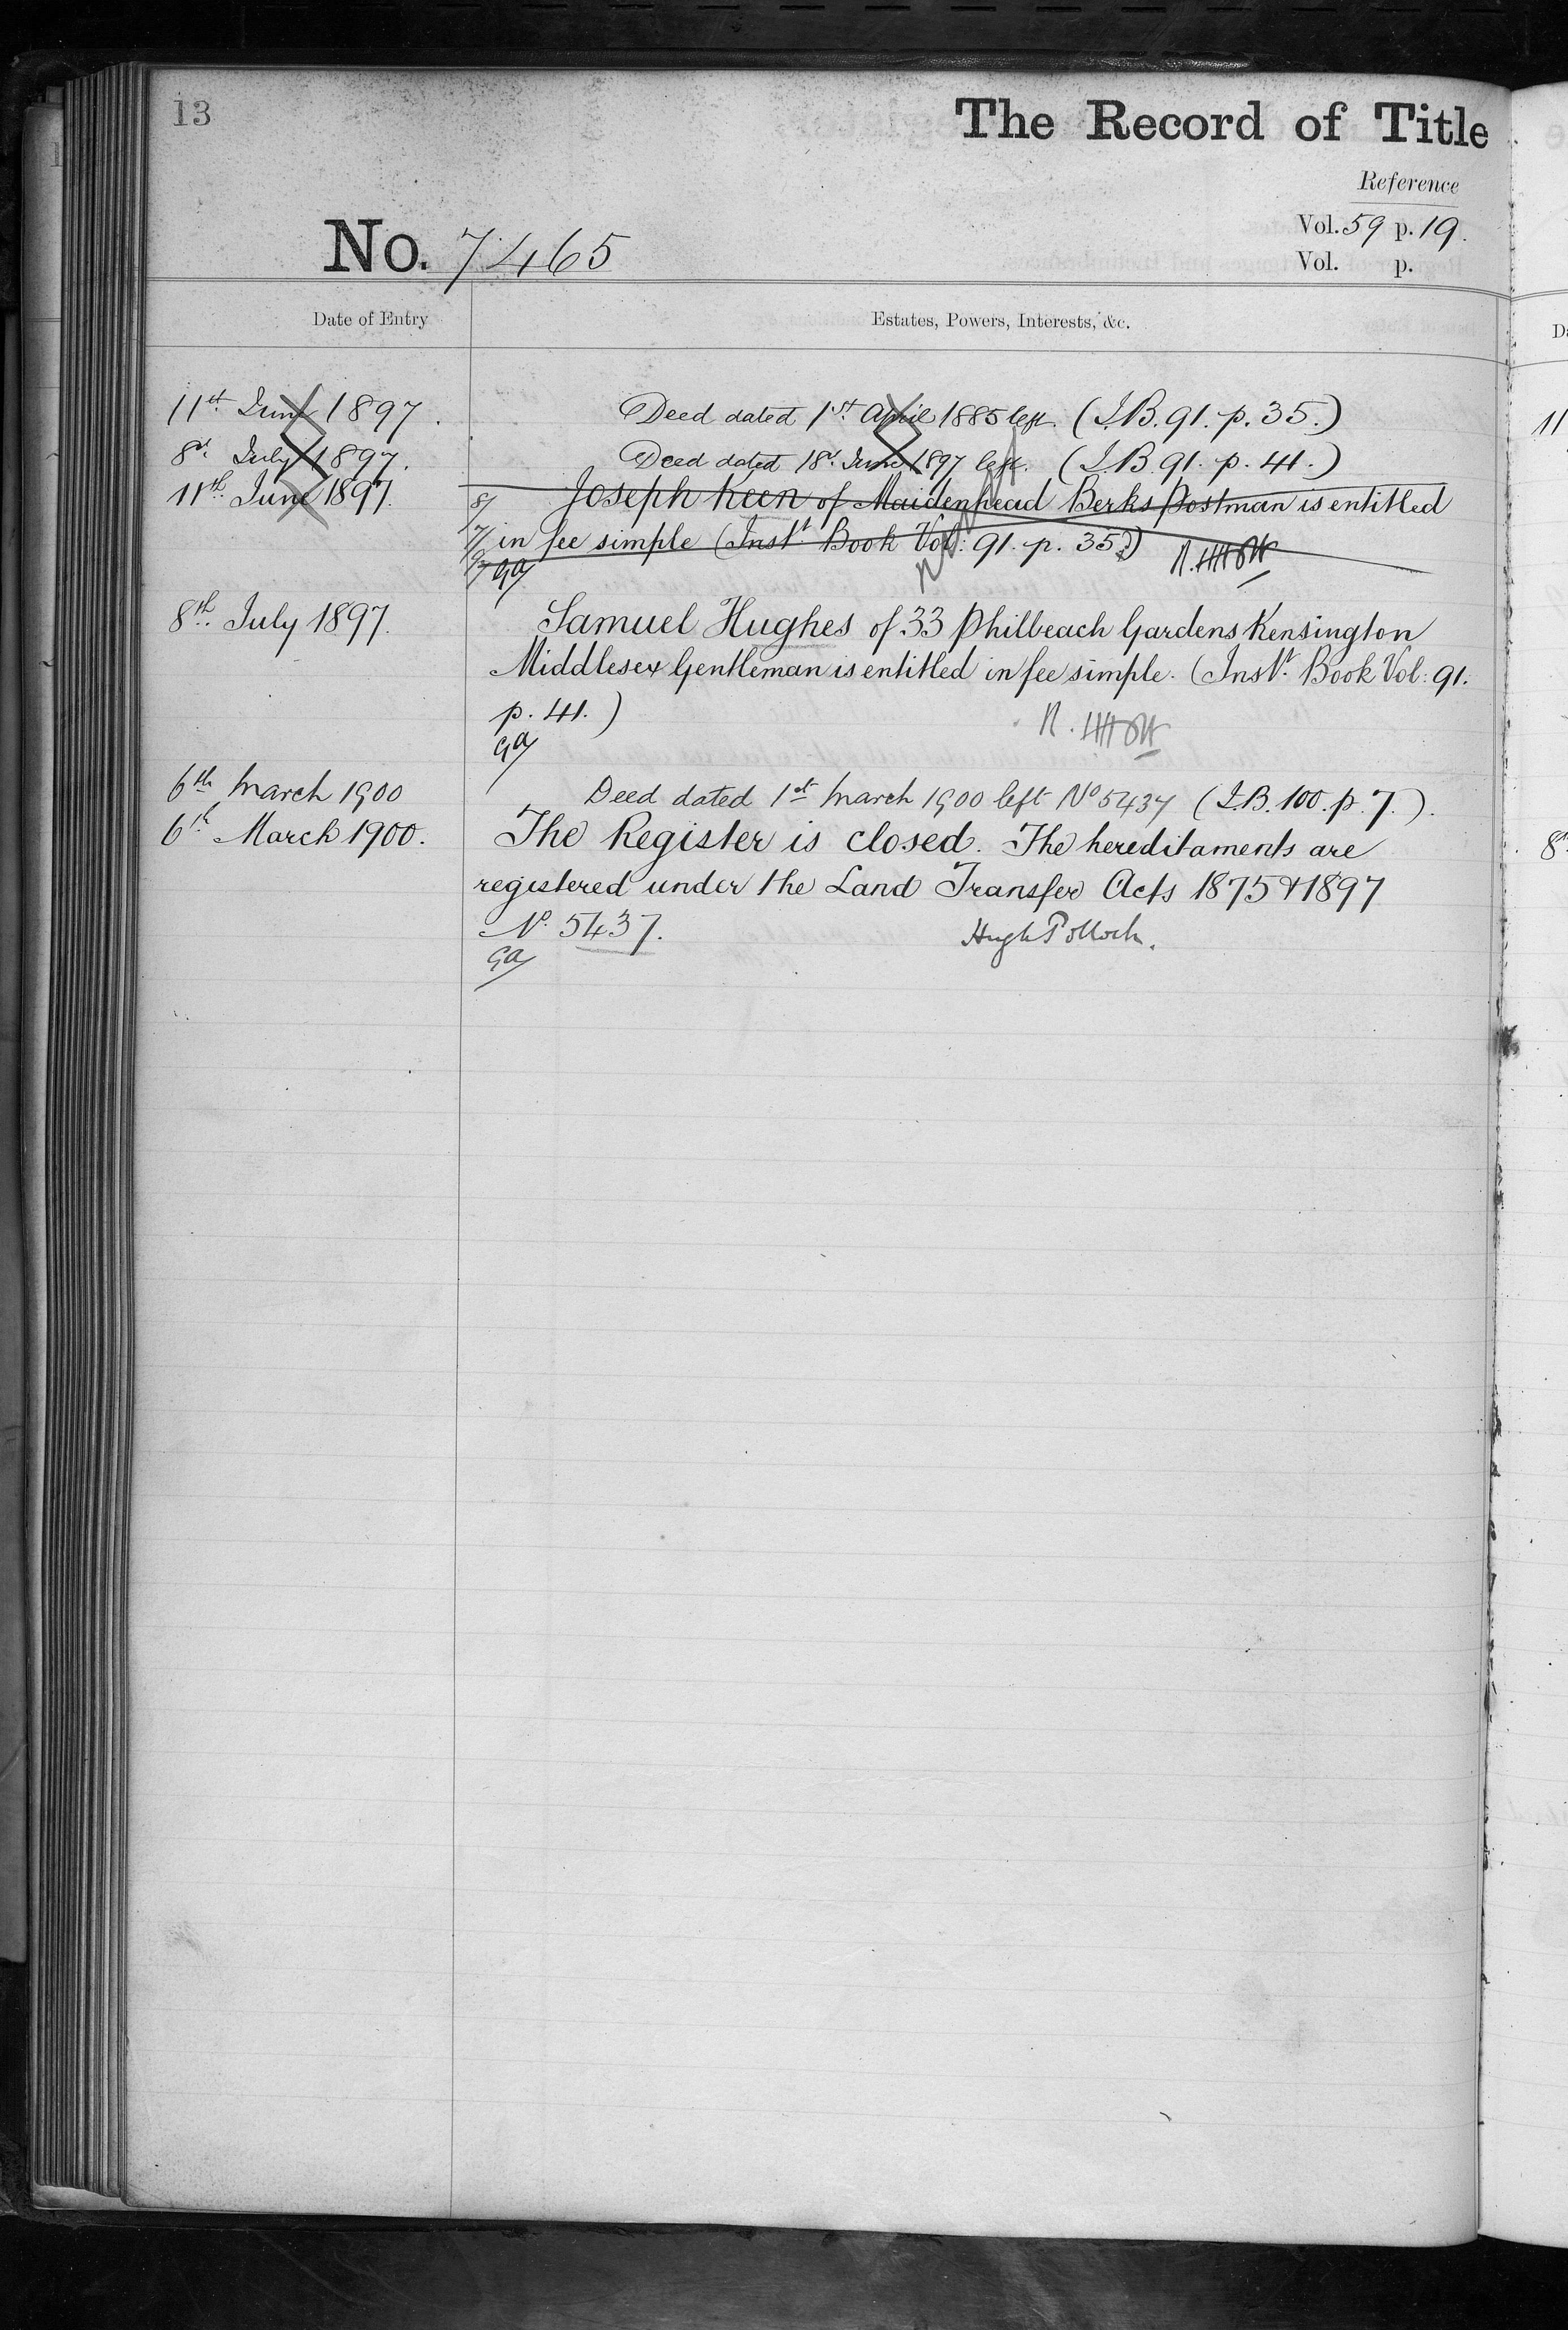 13
The Record of Title
Reference
Vol. 59 p. 19.
No. 7465
Vol. p.
Date of Entry Estates, Powers, Interests, &c.
11th June 1897. Deed dated 1st April 1885 left. (I.B. 91. p. 35.)
8th July 1897. Deed dated 18th June 1897 left. (I.B. 91. p. 41.)
11th June 1897. Joseph Keen of Maidenhead Berks Postman is entitled
in fee simple (Inst. Book Vol: 91. p. 35.)
8th July 1897. Samuel Hughes of 33 Philbeach Gardens Kensington
Middlesex Gentleman is entitled in fee simple. (Inst. Book Vol: 91.
p. 41.)
6th March 1900 Deed dated 1st March 1900 left No 5437 (I.B. 100. p. 7.).
6th March 1900. The Register is closed. The hereditaments are
registered under the Land Transfer Acts 1875 & 1897
No. 5437. Hugh Pollock.